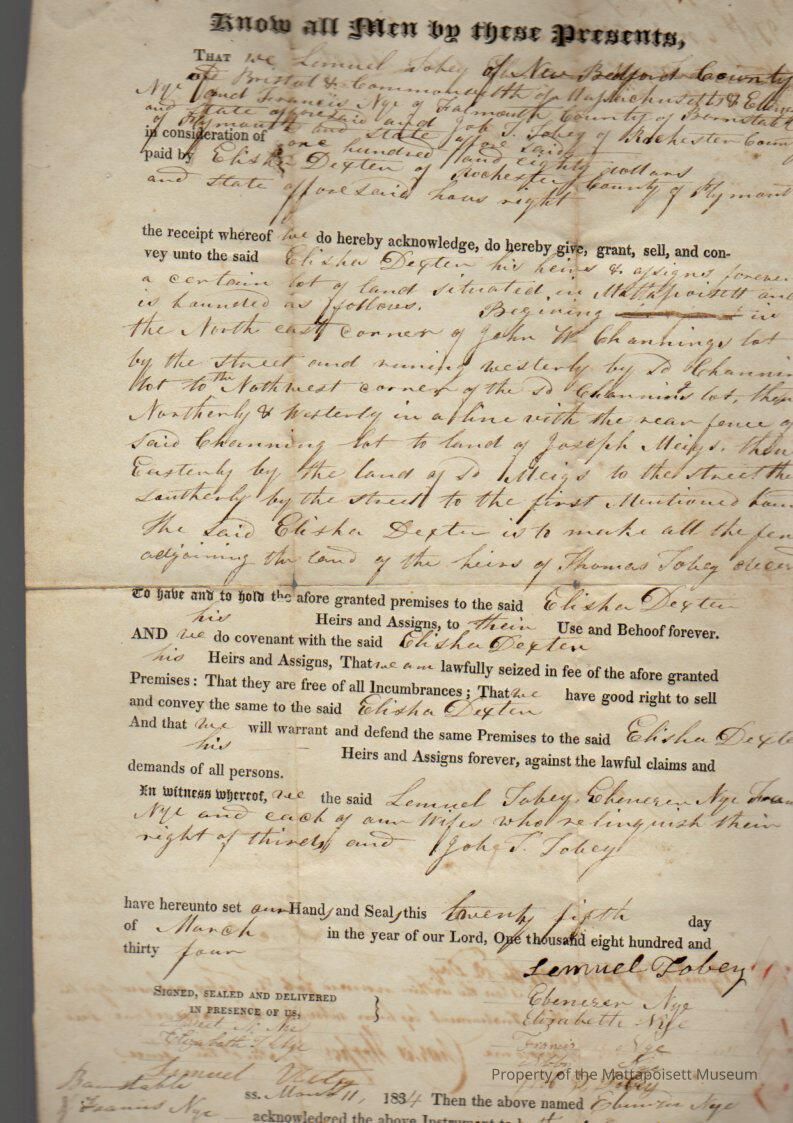 Know all Men by these Presents,
THAT we Lemuel Tobey of New Bedford County
of Bristol & Commonwealth of Massachusetts & Eben
Nye and Francis Nye of Falmouth County of Barnstable
and State aforesaid and Job T. Tobey of Rochester Coun
of Plymouth and State afore said
in consideration of one hundred and eighty dollars
paid by Elisha Dexter of Rochester County of Plymout
and State afforesaid hows right
the receipt whereof we do hereby acknowledge, do hereby give, grant, sell, and con-
vey unto the said Elisha Dexter his heirs & assigns forever
a certain lot of land situated in Mattapoisett and
is bounded as follows. Begining in
the North east corner of John W Channings lot
by the street and runing westerly by sd Channin
lot to the Nothwest corner of the sd Channings lot, then
Northerly & Westerly in a line with the rear fence of
said Channing lot to land of Joseph Meigs. then
Easterly by the land of sd Meigs to the street the
Southerly by the street to the first Mentioned boun
The said Elisha Dexter is to make all the fen
adjoining the land of the heirs of Thomas Tobey decea
To have and to hold the afore granted premises to the said Elisha Dexter
his Heirs and Assigns, to their Use and Behoof forever.
AND we do covenant with the said Elisha Dexter
his Heirs and Assigns, That we am lawfully seized in fee of the afore granted
Premises: That they are free of all Incumbrances; That we have good right to sell
and convey the same to the said Elisha Dexter
And that we will warrant and defend the same Premises to the said Elisha Dexte
his Heirs and Assigns forever, against the lawful claims and
demands of all persons.
In witness whereof, we the said Lemuel Tobey, Ebenezer Nye Fran
Nye and each of our Wifes who relinquish their
right of thirds and Job T. Tobey
have hereunto set our Hands and Seals this twenty fifth day
of March in the year of our Lord, One thousand eight hundred and
thirty four
Lemuel Tobey
SIGNED, SEALED AND DELIVERED
IN PRESENCE OF US,
Ebenezer Nye
Elizabeth Nye
Francis Nye
Elizabeth T Nye
Lemuel
Tobey
Property of the Mattapoisett Museum
Barnstable ss. March 11, 1834 Then the above named Ebenezer Nye
& Francis Nye acknowledged the above Instrument to